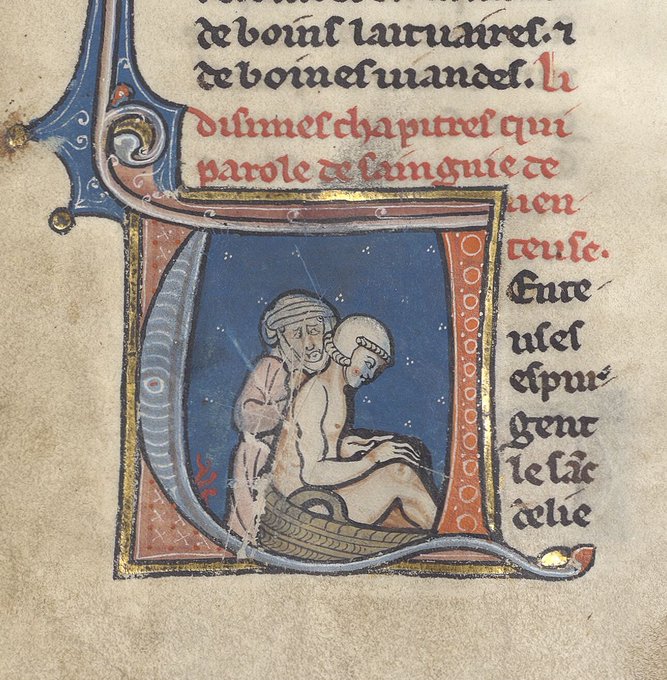 de boins laituaires. ⁊
de boines uiandes. li
disimes chapitres qui
parole de sainguie de
uen
teuse.
UEnte-
uses
espur-
gent
le sāc
delie